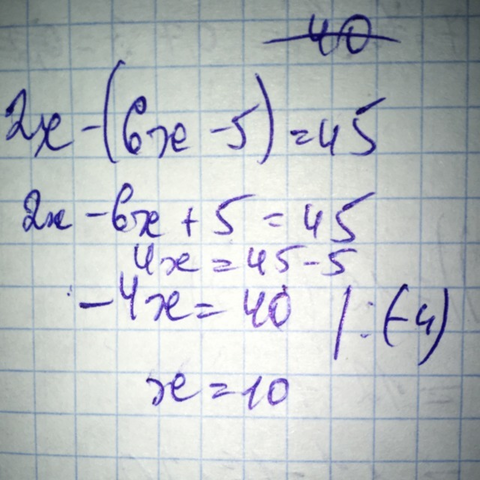 40
2x - (6x - 5) = 45
2x - 6x + 5 = 45
4x = 45 - 5
-4x = 40 | : (-4)
x = 10